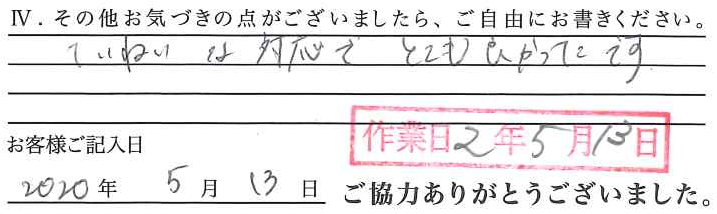 Ⅳ．その他お気づきの点がございましたら、ご自由にお書きください。
ていねいな対応で とてもよかったです
作業日2年5月13日
お客様ご記入日
2020年 5月 13日 ご協力ありがとうございました。